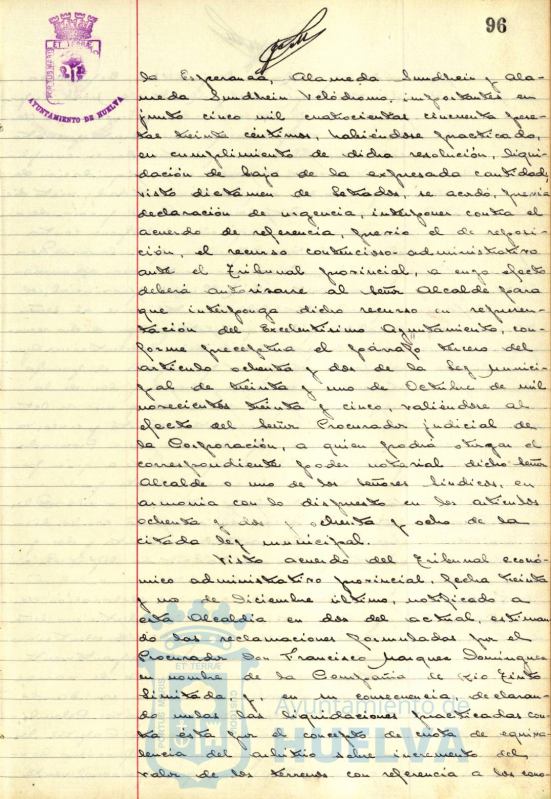 96
ET TERRÆ C
AYUNTAMIENTO DE HUELVA
la Esperanza, Alameda Sundheim y Ala-
meda Sundheim Velódromo, importantes en
junto cinco mil cuatrocientas cincuenta pese-
tas treinta céntimos, habiéndose practicado,
en cumplimiento de dicha resolución, liqui-
dación de baja de la expresada cantidad;
visto dictamen de Letrados, se acordó, previa
declaración de urgencia, interponer contra el
acuerdo de referencia, previo el de reposi-
ción, el recurso contencioso-administrativo
ante el Tribunal provincial, a cuyo efecto
deberá autorizarse al Señor Alcalde para
que interponga dicho recurso en represen-
tación del Excelentísimo Ayuntamiento, con-
forme preceptúa el párrafo tercero del
artículo ochenta y dos de la ley munici-
pal de treinta y uno de Octubre de mil
novecientos treinta y cinco, valiéndose al
efecto del Señor Procurador judicial de
la Corporación, a quien podrá otorgar el
correspondiente poder notarial dicho Señor
Alcalde o uno de los señores Síndicos, en
armonía con lo dispuesto en los artículos
ochenta y dos y ochenta y ocho de la
citada ley municipal.
Visto acuerdo del Tribunal econó-
mico administrativo provincial, fecha treinta
y uno de Diciembre último, notificado a
esta Alcaldía en dos del actual, estiman-
do las reclamaciones formuladas por el
Procurador Don Francisco Marquez Domínguez
en nombre de la Compañía de Río Tinto
Limitada, y, en su consecuencia, declaran-
do nulas las liquidaciones practicadas con-
tra ésta por el concepto de cuota de equiva-
lencia del arbitrio sobre incremento del
valor de los terrenos con referencia a los cono-
ET TERRÆ
PORTUS MARIS
CUSTODIA
Ayuntamiento de
HUELVA